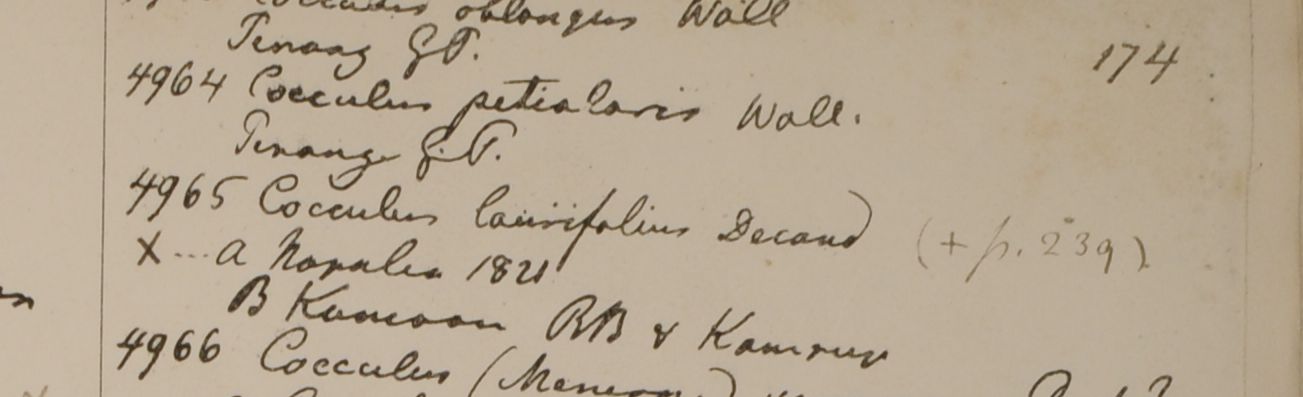 Cocculus oblongus Wall
Penang G.P.
174
4964 Cocculus petiolaris Wall.
Penang G.P.
4965 Cocculus laurifolius Decand (+ p. 239)
X... a Napalia 1821
B Kamoon RB & Kamrup
4966 Cocculus